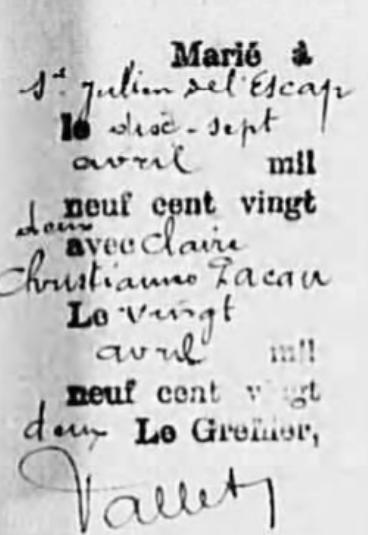 Marié à
St Julien de l'Escap
le dix-sept
avril mil
neuf cent vingt
deux
avec Claire
Christianne Pacau
Le vingt
avril mil
neuf cent vingt
deux Le Greffier,
Vallet